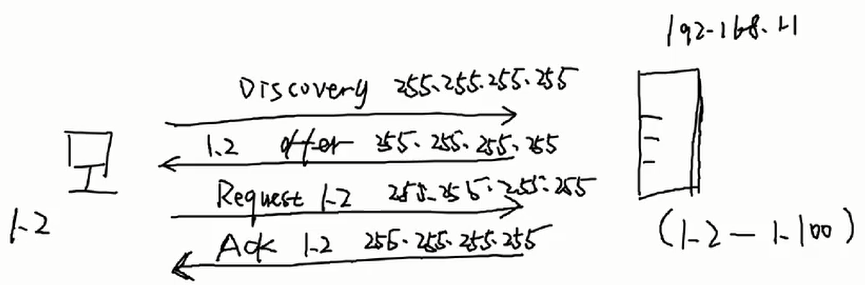 192.168.1.1
Discovery 255.255.255.255
1.2 offer 255.255.255.255
Request 1.2 255.255.255.255
1.2
Ack 1.2 255.255.255.255
(1.2 — 1.100)